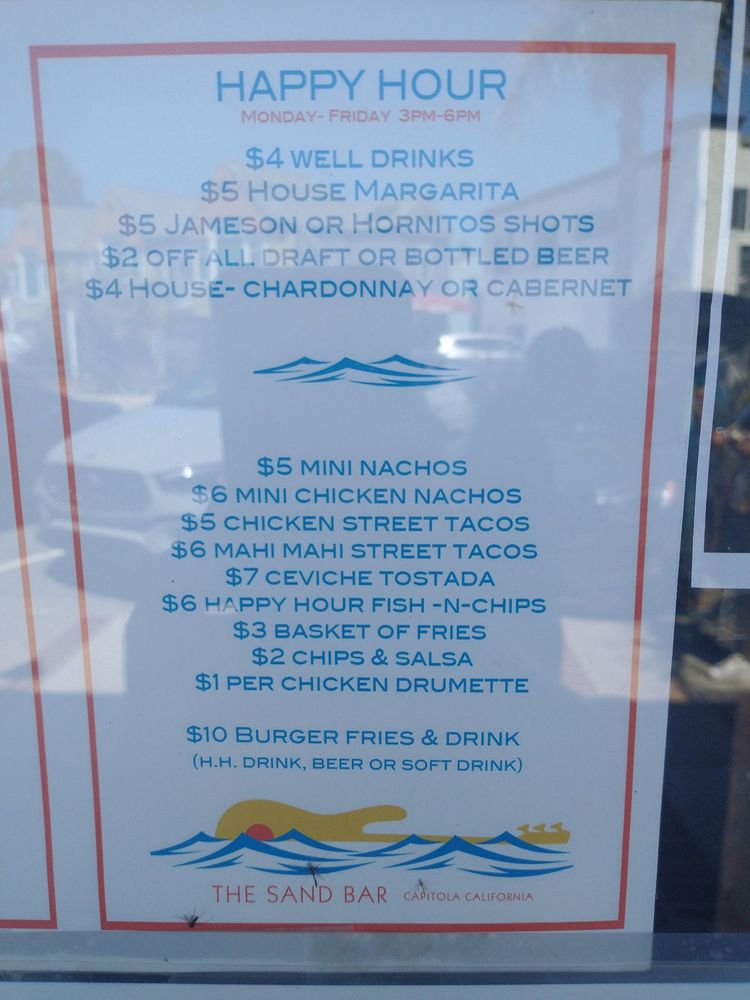 HAPPY HOUR
MONDAY- FRIDAY 3PM-6PM
$4 WELL DRINKS
$5 HOUSE MARGARITA
$5 JAMESON OR HORNITOS SHOTS
$2 OFF ALL DRAFT OR BOTTLED BEER
$4 HOUSE- CHARDONNAY OR CABERNET
$5 MINI NACHOS
$6 MINI CHICKEN NACHOS
$5 CHICKEN STREET TACOS
$6 MAHI MAHI STREET TACOS
$7 CEVICHE TOSTADA
$6 HAPPY HOUR FISH -N-CHIPS
$3 BASKET OF FRIES
$2 CHIPS & SALSA
$1 PER CHICKEN DRUMETTE
$10 BURGER FRIES & DRINK
(H.H. DRINK, BEER OR SOFT DRINK)
THE SAND BAR CAPITOLA CALIFORNIA